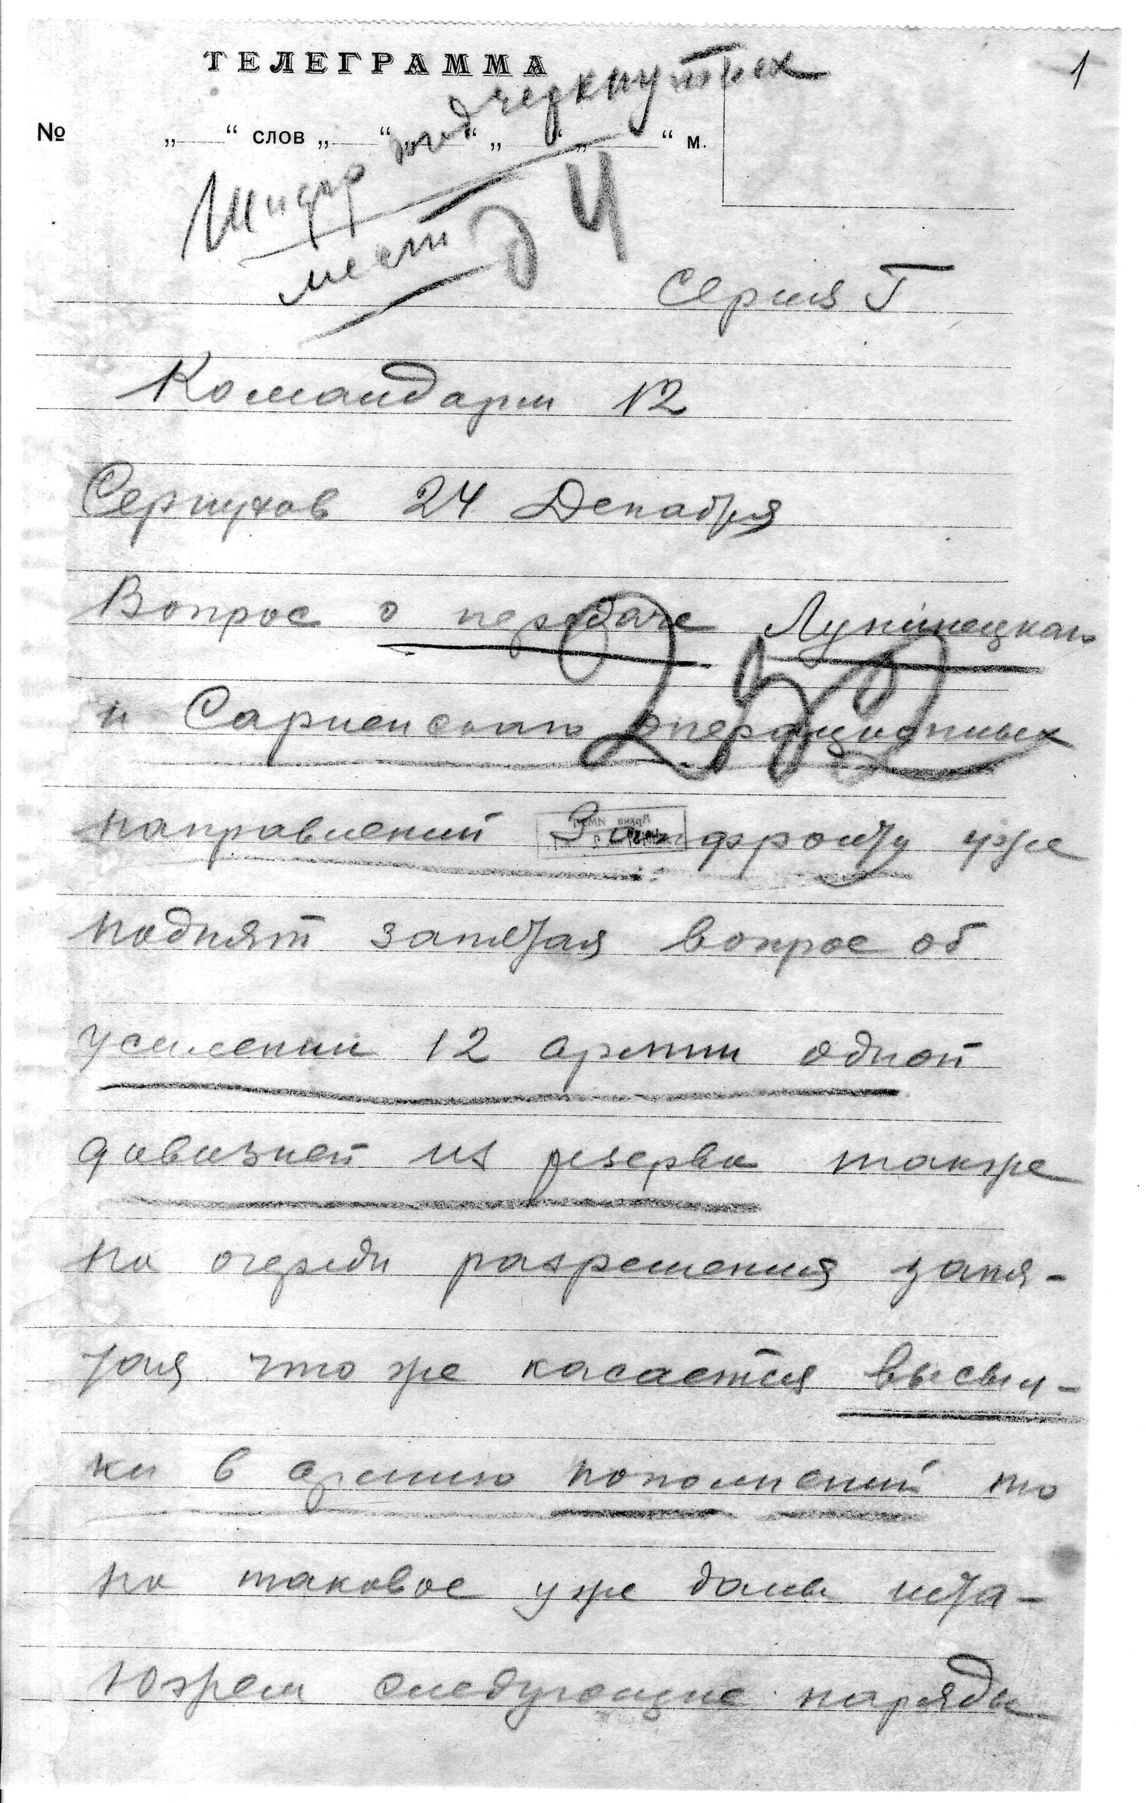 ТЕЛЕГРАММА
1
№ „ “ слов „ “ „ “ „ “ „ “ м.
Шифр подчеркнутых
мест
Серия Г
Командарм 12
Серпухов 24 Декабря
Вопрос о передаче Лунинецкаго
и Сарненскаго операционных
направлений Запфронту уже
поднят запятая вопрос об
усилении 12 армии одной
дивизией из резерва также
на очереди разрешения запя-
тая что же касается высыл-
ки в армию пополнений то
на таковое уже даны шта-
южем следующие наряды